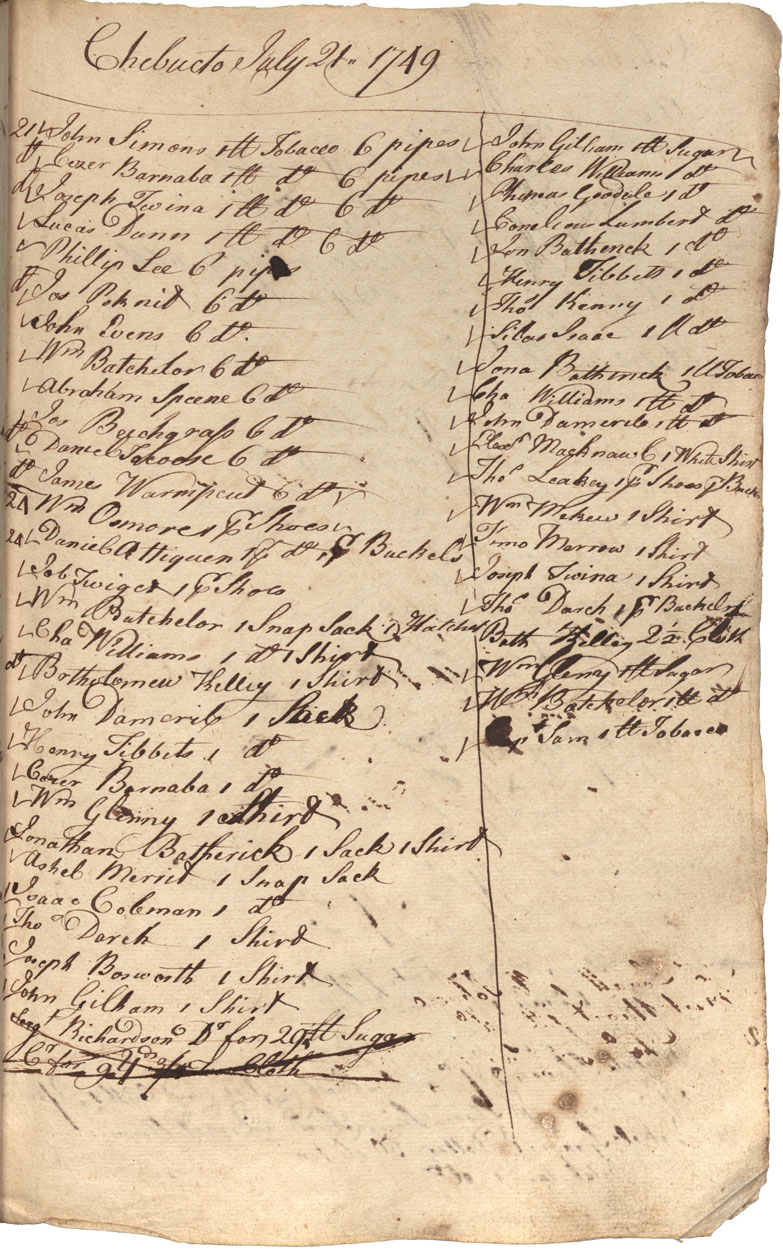 Chebucto July 21 1749
21 John Simons 1 lb Tobacco 6 pipes
do Eezer Barnaba 1 lb do 6 pipes
do Joseph Twina 1 lb do 6 do
Lucas Dunn 1 lb do 6 do
Phillip Lee 6 pipes
do Jos Peknit 6 do
John Evens 6 do
Wm Batchelor 6 do
Abraham Speene 6 do
Jos Beechgrass 6 do
do Daniel 6 do
do James Warmpeut 6 do
24 Wm Osmore 1 pr Shoes
24 Daniel Attiquent 1 pr do 1 pr Buckels
Job Twiget 1 pr Shoes
Wm Batchelor 1 Snap Sack 1 Hatchet
Cha Williams 1 do 1 Shirt
do Bartholomew Kelley 1 Shirt
John Damerib 1 Sack
Henry Tibbets 1 do
Eezer Barnaba 1 do
Wm Glenny 1 Shird
Jonathan Batherick 1 Sack 1 Shird
Ashel Merrit 1 Snap Sack
Isaac Colman 1 do
Tho Darch 1 Shird
Joseph Bosworth 1 Shirt
John Gilham 1 Shirt
Serg t Richardson Dr for 29 lb Sugar
Cr for Cloth
John Gilliam 1 lb Sugar
Charles Williams 1 do
Thomas Goodele 1 do
Cornelious Lumbert do
Jon Batherick 1 do
Henry Tibbets 1 do
Thos Kenny 1 do
Silas Isaac 1 lb do
Jona Batherick 1 lb Tobacco
Cha Williams 1 lb do
John Damerib 1 lb do
Elexr 1 White Shirt
Thos Leakey 1 pr Shoes pr Buckles
Wm Mekew 1 Shirt
Timo Marrow 1 Shirt
Joseph Twina 1 Shird
Thos Darch 1 pr Buckels
Bath Kelley 2 1/2 Cloth
Wm Glenny 1 lb Sugar
Wm Batchelor 1 lb do
Sam 1 lb Tobacco